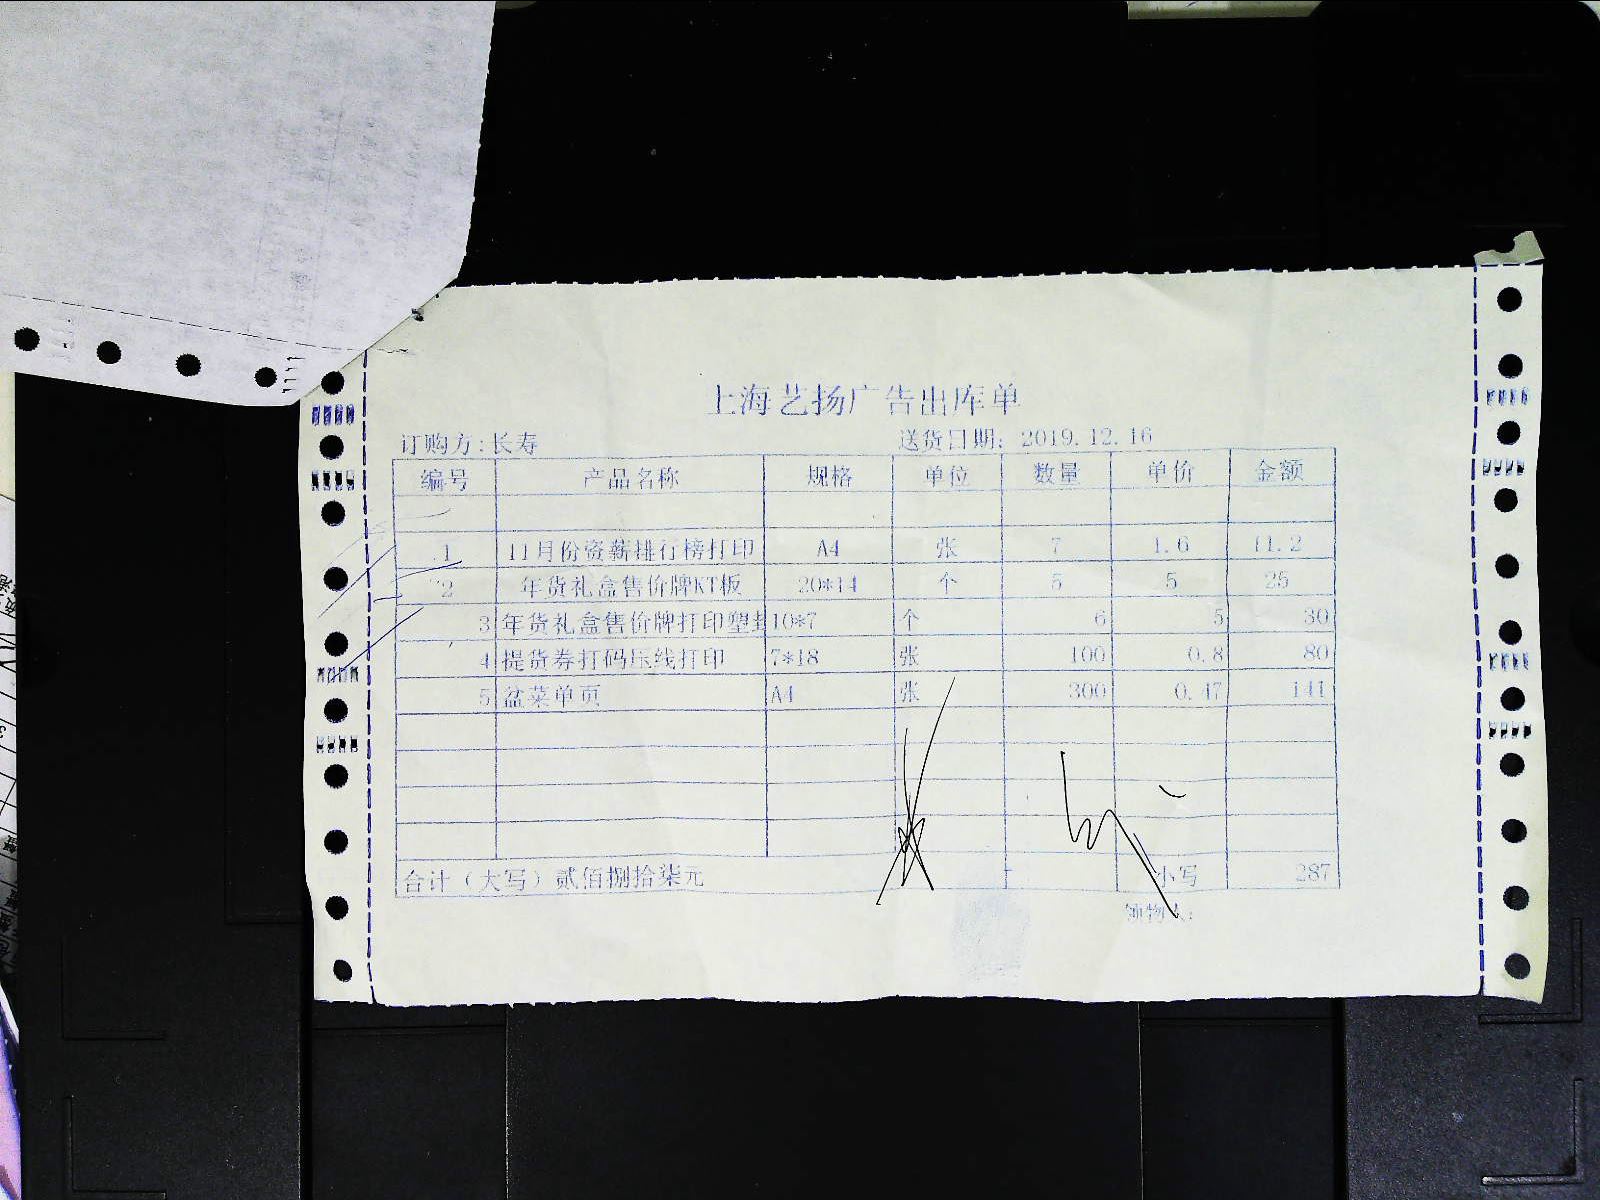 上海艺扬广告出库单
订购方:长寿 送货日期: 2019.12.16
编号 产品名称 规格 单位 数量 单价 金额
1 11月份资薪排行榜打印 A4 张 7 1.6 11.2
2 年货礼盒售价牌KT板 20*14 个 5 5 25
3 年货礼盒售价牌打印塑封 10*7 个 6 5 30
4 提货券打码压线打印 7*18 张 100 0.8 80
5 盆菜单页 A4 张 300 0.47 141
合计（大写）贰佰捌拾柒元 小写 287
领物人: